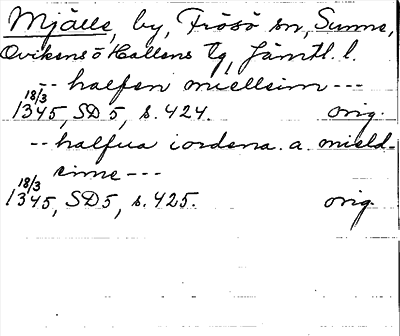 Mjälle, by, Frösö sn, Sunne,
Ovikens o Hallens tg, Jämtl. l.
-- halfen miellsim ---
18/3
1345, SD 5, s. 424. orig.
-- halfua iordena a mield-
sime ---
18/3
1345, SD 5, s. 425. orig.